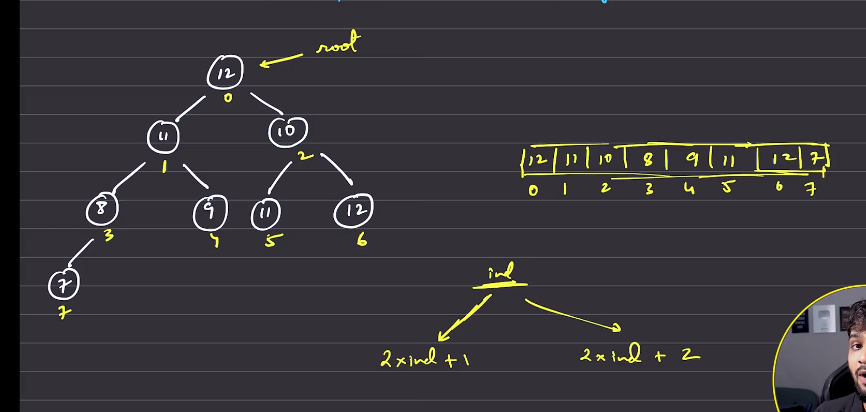 root
12
0
11 10
1 2
8 9 11 12
3 4 5 6
7
7
12 11 10 8 9 11 12 7
0 1 2 3 4 5 6 7
ind
2xind + 1 2xind + 2